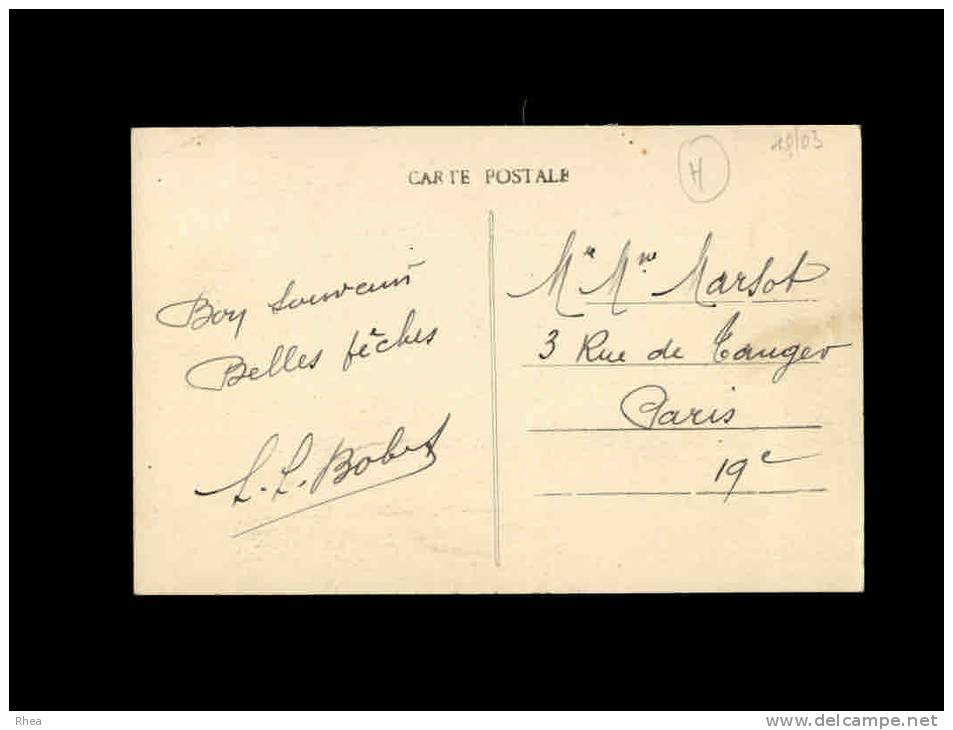 CARTE POSTALE
H
Bon souvenir
Belles pêches
L. L. Bobet
Mr Mme Marsot
3 Rue de Tanger
Paris
19e
Rhea
www.delcampe.net